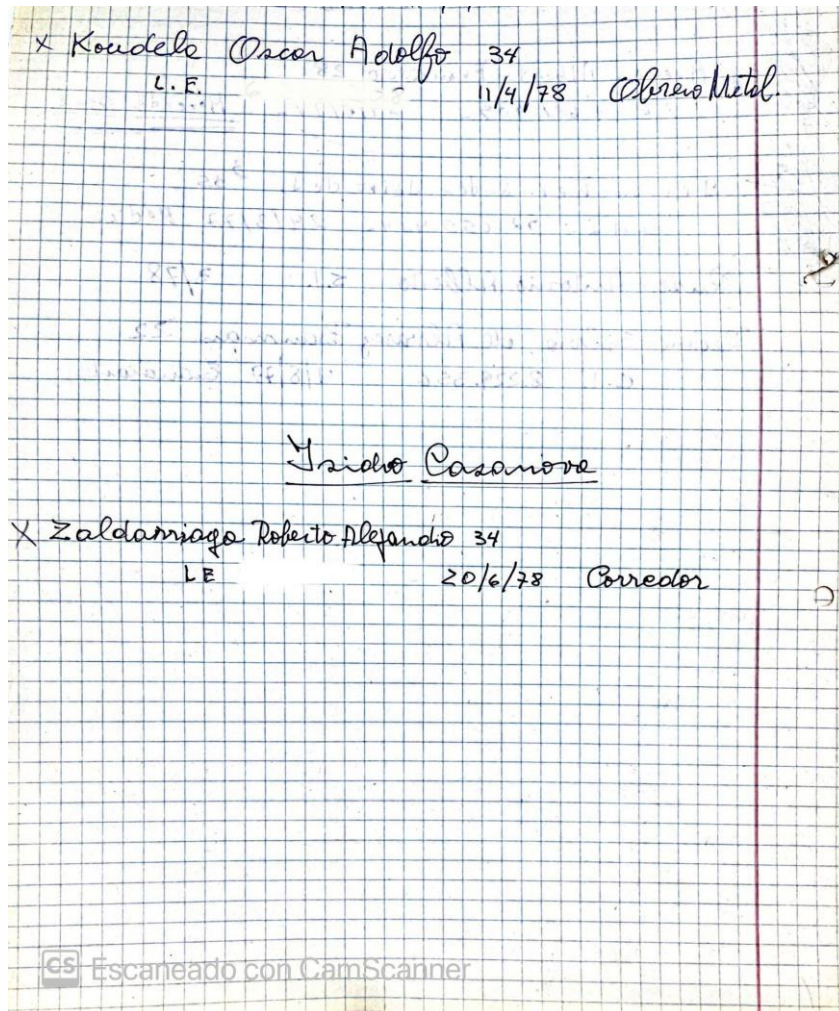 x Koudela Oscar Adolfo 34
L.E. 11/4/78 Obrero Metal.
Isidro Casanova
X Zaldarriaga Roberto Alejandro 34
LE 20/6/78 Corredor
CS Escaneado con CamScanner